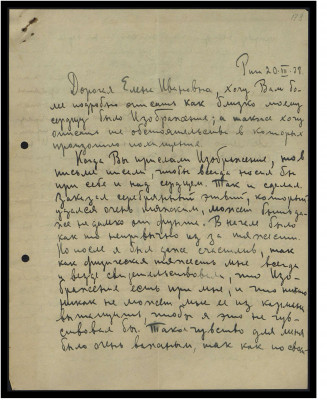 Рига 20.IX.39.
Дорогая Елена Ивановна, хочу Вам бо-
лее подробно описать как близко моему
сердцу было Изображение; а также хочу
описать те обстоятельства в которых
произошло
Когда Вы прислали Изображение, то в
письме писали, чтобы всегда носил бы
при себе и над сердцем. Так и сделал.
Заказал серебряный который
очень может быть да-
же недалеко от фунта. В начале было
как то непривычно из за тяжести.
Но после я был даже счастлив, так
как физическая тяжесть мне всегда
и везде свидетельствовала, что Изо-
бражение есть при мне, и что никто
никак не может мне ее из кармана
вытащить, чтобы я это не чув-
ствовал бы. Такое чувство для меня
было очень важным, так как по сво-